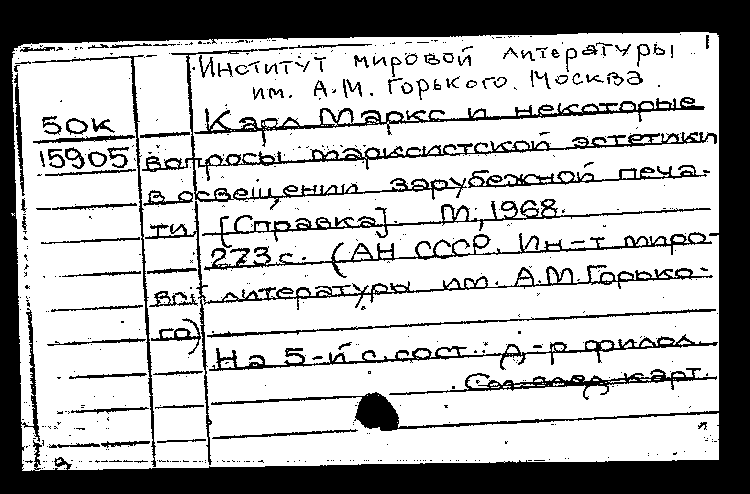 Институт мировой литературы
им. А.М. Горького. Москва.
50к Карл Маркс и некоторые
15905 вопросы марксистской эстетики
в освещении зарубежной печа-
ти [Справка]. М., 1968.
273 с. (АН СССР. Ин-т миро-
вой литературы им. А.М. Горько-
го)
На 5-й с. сост.: Д-р филол.
карт.